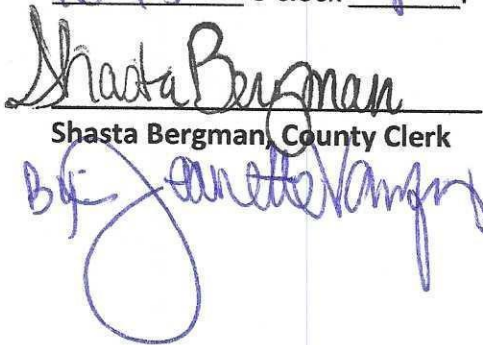 O'clock
Shasta Bergman
Shasta Bergman, County Clerk
By: Jeanette